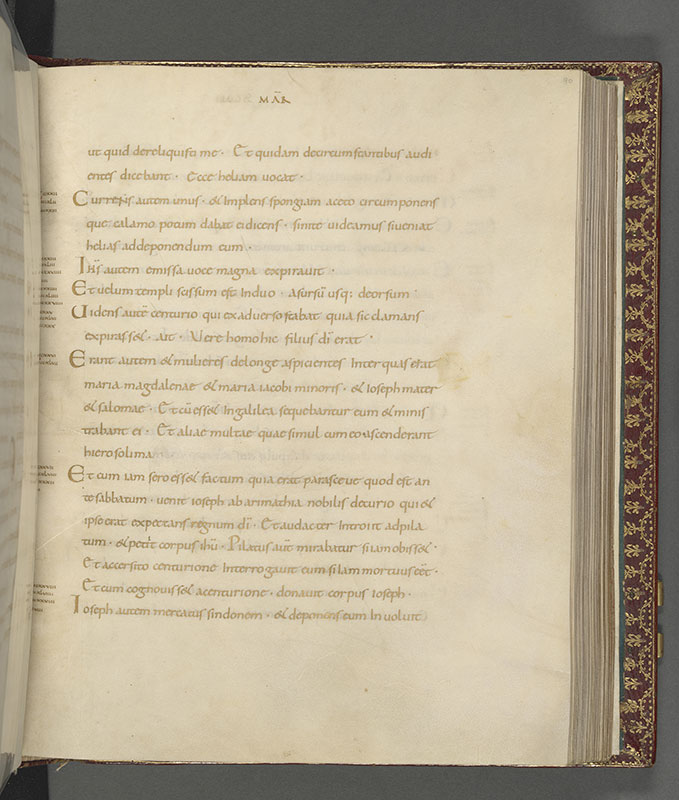 MAR̄
ut quid dereliquisti me · Et quidam decircumstantibus audi
entes dicebant · Ecce heliam uocat ·
Currens autem unus · & Implens spongiam aceto circumponens
que calamo potum dabat ei dicens · sinite uideamus siueniat
helias addeponendum eum ·
Ih̄s autem emissa uoce magna expirauit ·
Et uelum templi scissum est Induo · Asursū usq; deorsum ·
Uidens autē centurio qui exaduerso stabat quia sic clamans
expirass& · ait · Uere homo hic filius dī erat ·
Erant autem & mulieres delonge aspicientes Inter quas erat
maria magdalenae & maria iacobi minoris · & Ioseph mater
& salomae · Et cū ess& Ingalilea sequebantur eum & minis
trabant ei · Et aliae multae quae simul cum eo ascenderant
hierosolima
Et cum iam sero ess& factum quia erat parasceue quod est an
te sabbatum · uenit ioseph ab arimathia nobilis decurio qui &
ipse erat expectans regnum dī · Et audacter Introiit adpila
tum · & petiit corpus ihū · Pilatus aūt mirabatur si iam obiss& ·
Et accersito centurione Interrogauit eum si Iam mortuus eēt ·
Et cum cognouiss& acenturione · donauit corpus ioseph ·
Ioseph autem mercatus sindonem · & deponens eum Inuoluit